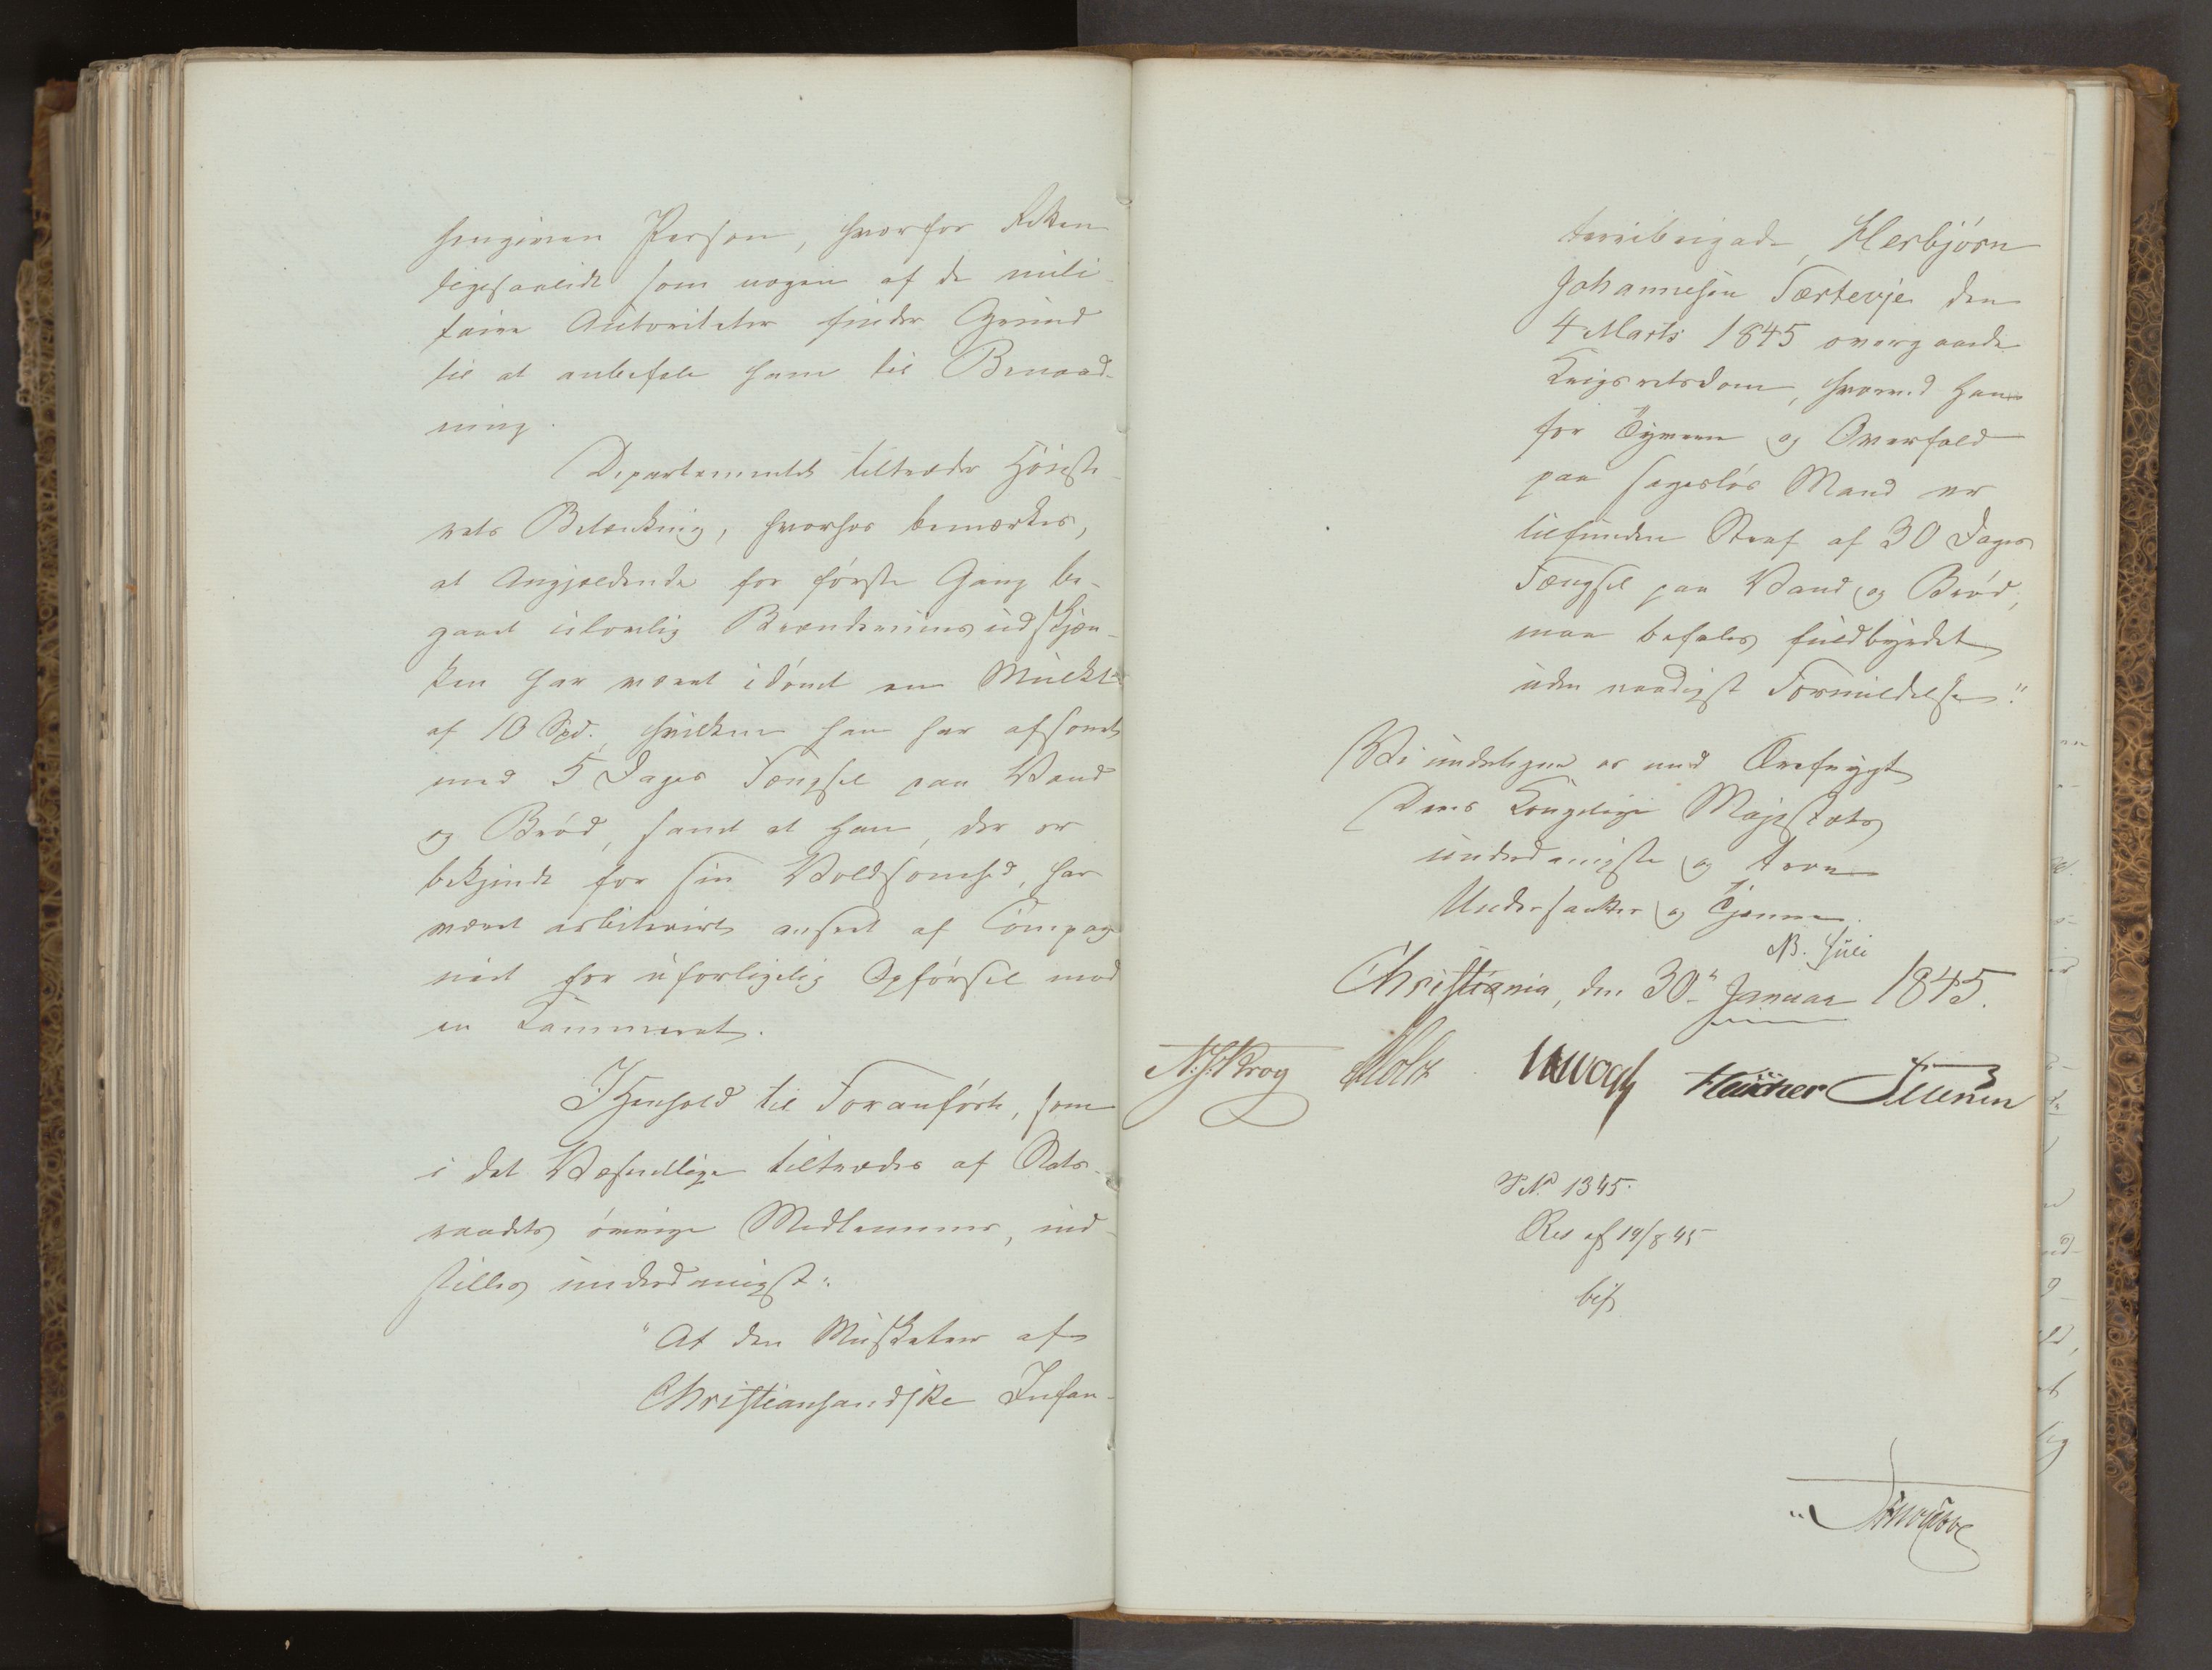 hengiven Person, hvorfor Retten
ligesaalidt som nogen af de mili-
taire Autoriteter finder Grund
til at anbefale ham til Benaad-
ning.
Departementet tiltræder Höieste-
rets Betænkning, hvorhos bemærkes,
at Angjældende for förste Gang be-
gaaet ulovlig Brændeviinsudskjæn-
ken har været idömt en Mulkt
af 10 Spd., hvilken han har afsonet
med 5 Dages Fængsel paa Vand
og Bröd, samt at han, der er
bekjendt for sin Voldsomhed, har
været arbitrairt anseet af Compag-
niet for uforligelig Opförsel mod
en Kammerat.
I Henhold til Foranförte, som
i det Væsentlige tiltrædes af Stats-
raadets övrige Medlemmer, ind-
stilles underdanigst:
"At den Musketeer af
Christiansandske Infan-
teribrigade, Herbjörn
Johannesen Tærtevje den
4 Marts 1845 overgaaede
Krigsretsdom, hvorved Han
for Tyverie og Overfald
paa sageslös Mand er
tilfunden Straf af 30 Dages
Fængsel paa Vand og Bröd,
maa befales fuldbyrdet
uden naadigst Formildelse."
Vi indelegne os med Ærefrygt
Deres Kongelige Majestæts
underdanigste og troe
Undersaatter og Tjenere.
NB. Juli
Christiania, den 30te Januar 1845.
N. J. Krog Holst JHVogt
PN. 1345.
Res af 19/8 45
bif